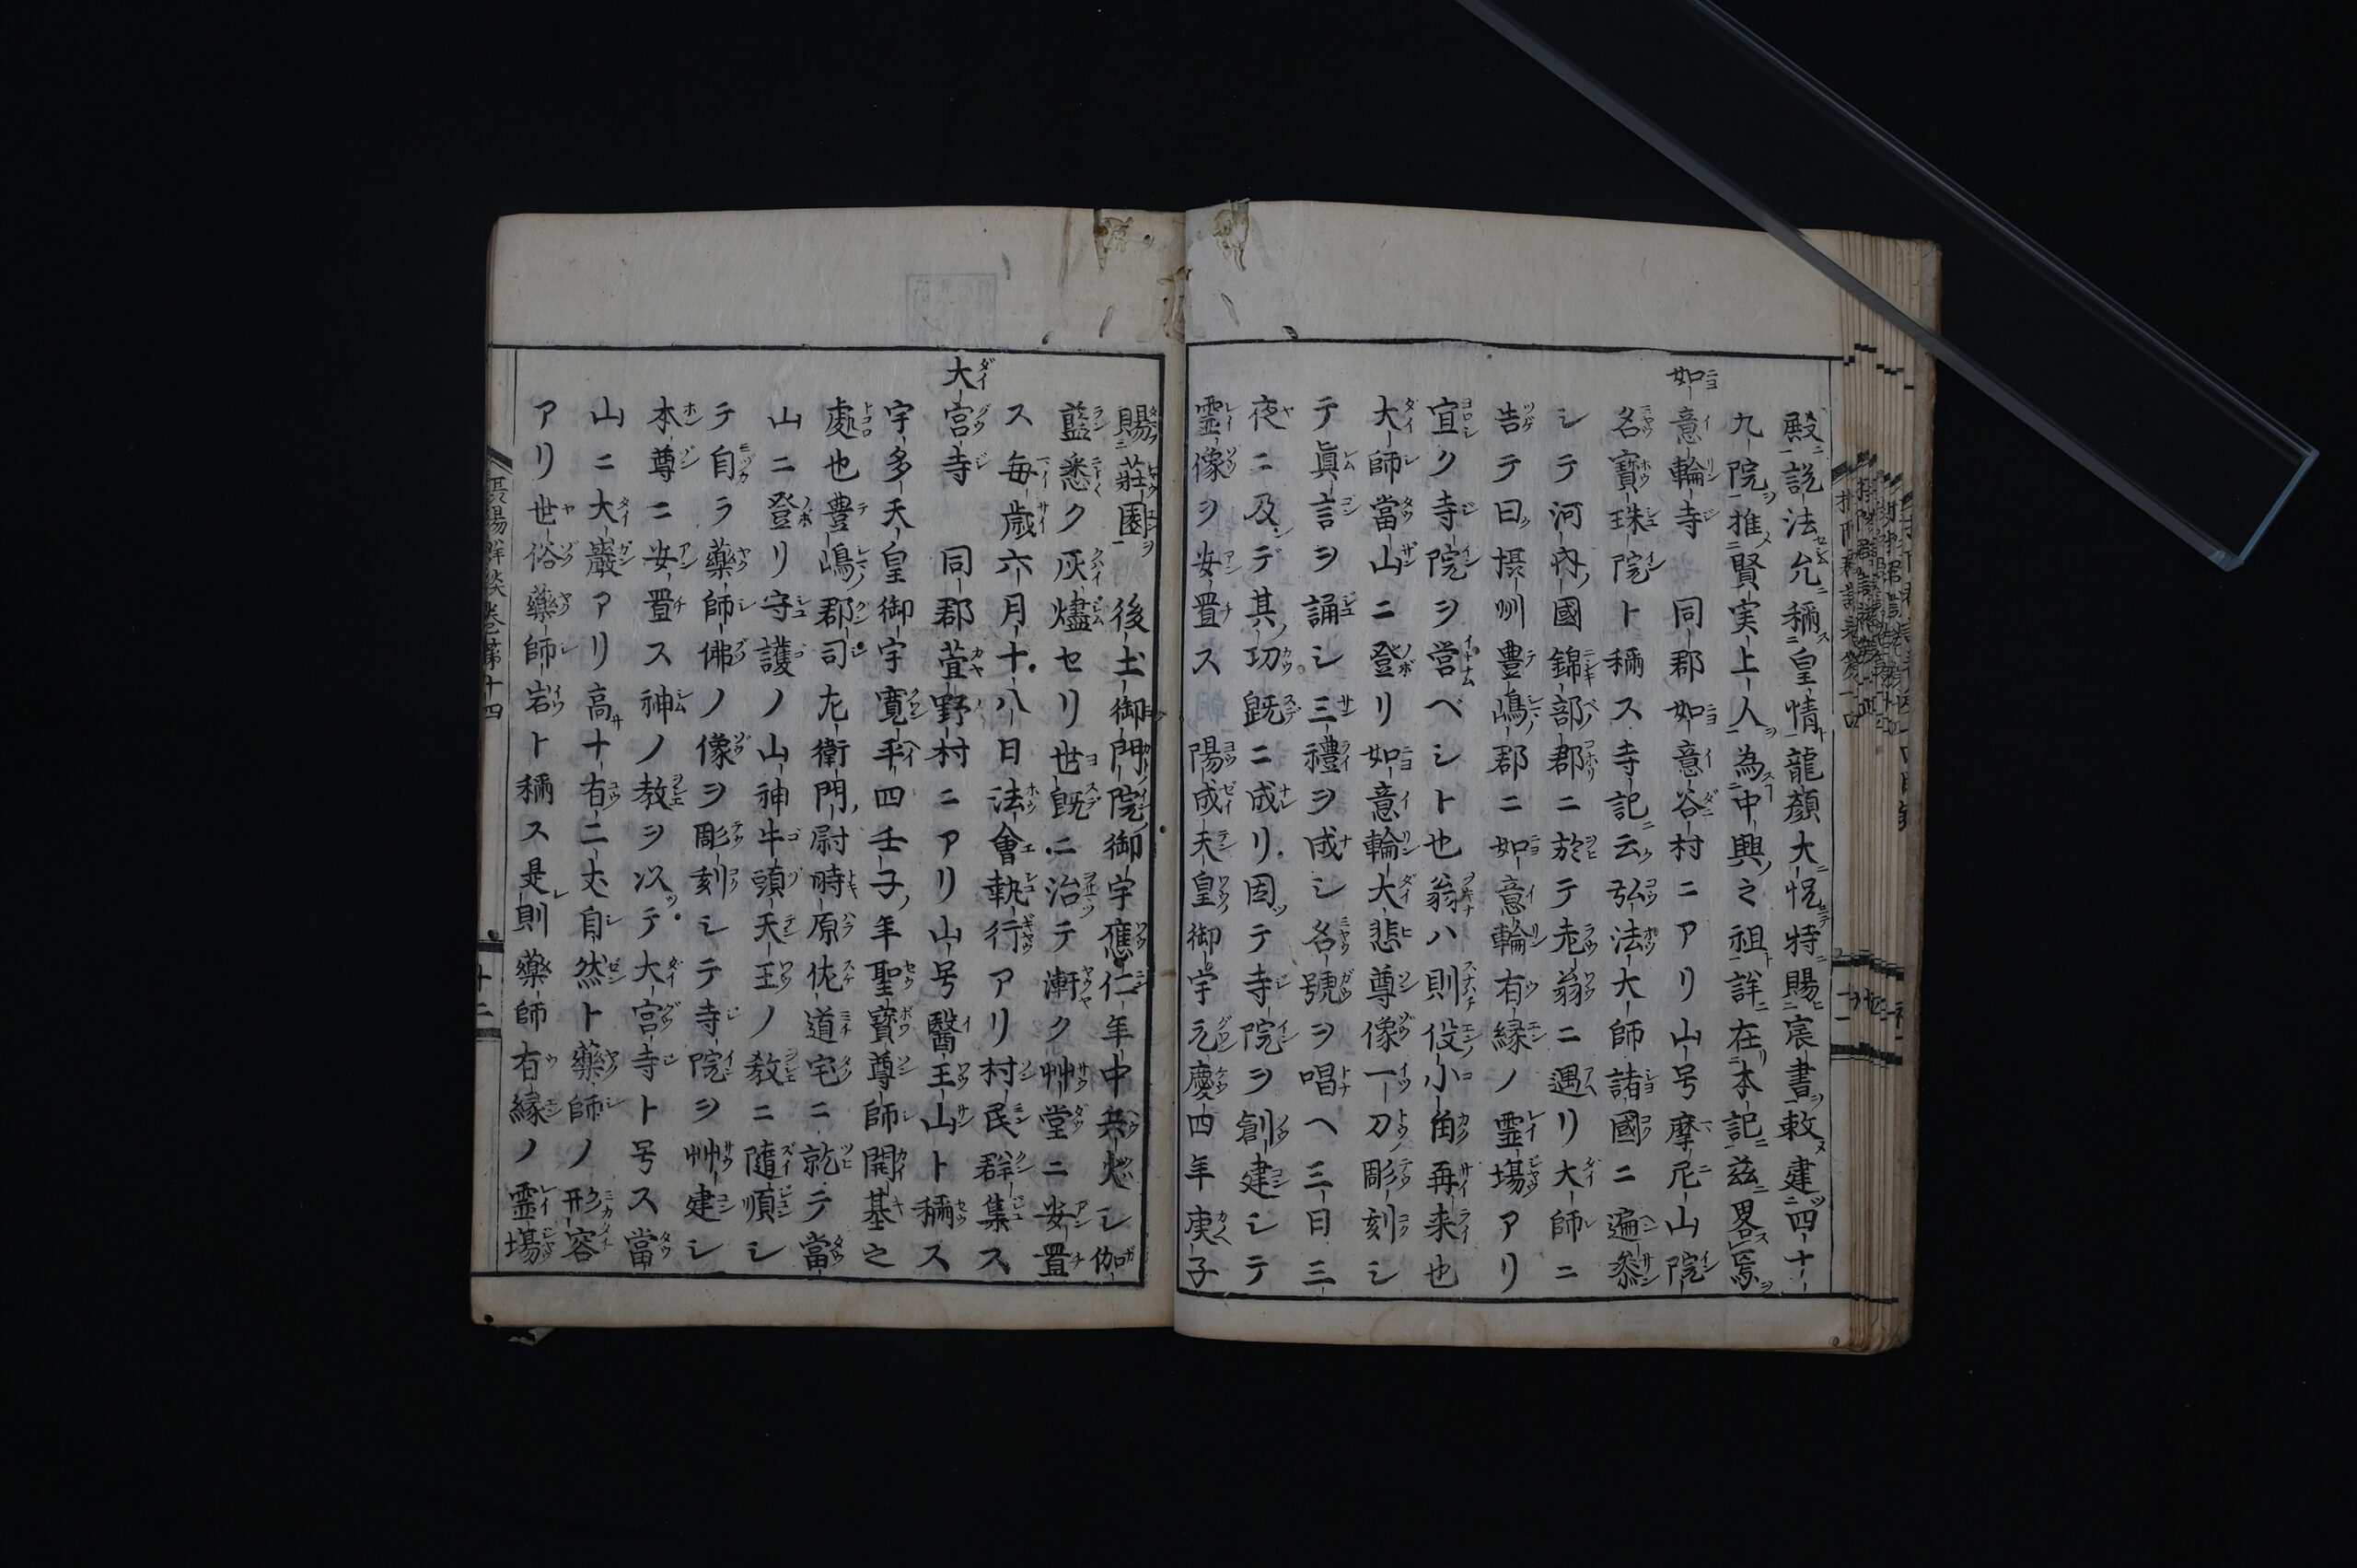 殿説法允稱皇情龍顔大悦特賜宸書敕建四十
九院推賢実上人為中興之祖詳在本記茲畧焉
如意輪寺 同郡如意谷村ニアリ山号摩尼山院
名寳珠院ト稱ス寺記云弘法大師諸國ニ遍叅
シテ河内國錦部郡ニ於テ老翁ニ遇リ大師ニ
告テ曰摂州豊嶋郡ニ如意輪有縁ノ霊場アリ
宜ク寺院ヲ営ベシト也翁ハ則役小角再来也
大師當山ニ登リ如意輪大悲尊像一刀彫刻シ
テ眞言ヲ誦シ三禮ヲ成シ名號ヲ唱ヘ三日三
夜ニ及デ其功既ニ成リ因テ寺院ヲ創建シテ
霊像ヲ安置ス 陽成天皇御宇元慶四年庚子
賜莊園 後土御門院御宇應仁年中兵火シ伽
藍悉ク灰燼セリ世既ニ治テ漸ク艸堂ニ安置
ス毎歳六月十八日法會執行アリ村民群集ス
大宮寺 同郡萱野村ニアリ山号醫王山ト稱ス
宇多天皇御宇寛平四壬子年聖寳尊師開基之
處也豊嶋郡司左衛門尉時原佐道宅ニ就テ當
山ニ登リ守護ノ山神牛頭天王ノ教ニ隨順シ
テ自ラ藥師佛ノ像ヲ彫刻シテ寺院ヲ艸建シ
本尊ニ安置ス神ノ教ヲ以テ大宮寺ト号ス當
山ニ大巖アリ高十有二丈自然ト藥師ノ形容
アリ世俗藥師岩ト稱ス是則藥師有縁ノ霊場
卷第十四
十二